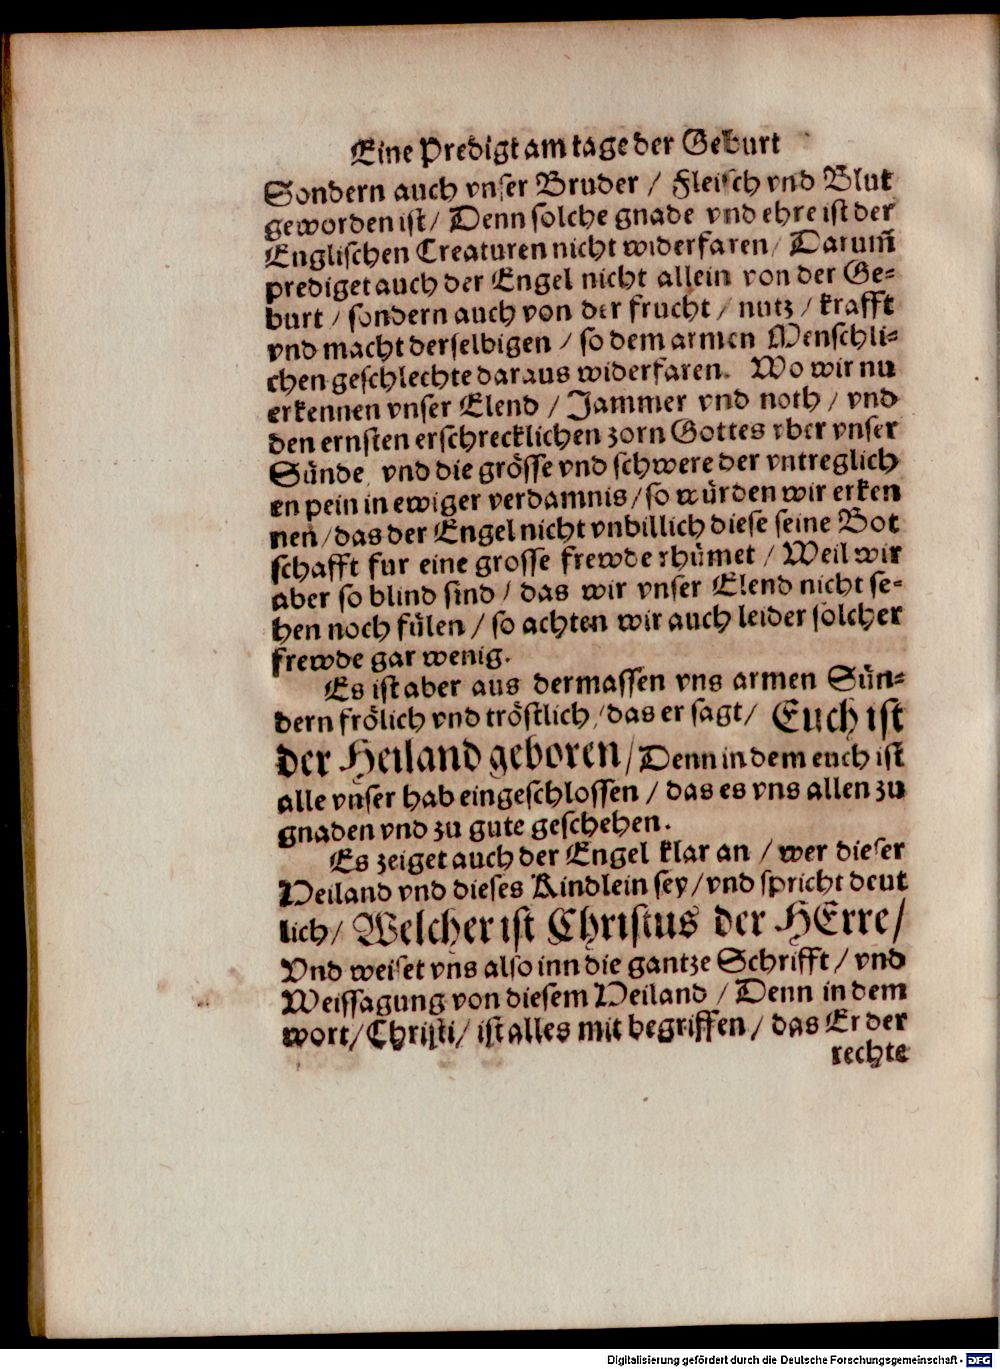 Eine Predigt am tage der Geburt
Sondern auch vnser Bruder / Fleisch vnd Blut
geworden ist / Denn solche gnade vnd ehre ist der
Englischen Creaturen nicht widerfaren / Darum̃
prediget auch der Engel nicht allein von der Ge-
burt / sondern auch von der frucht / nutz / krafft
vnd macht derselbigen / so dem armen Menschli-
chen geschlechte daraus widerfaren. Wo wir nu
erkennen vnser Elend / Jammer vnd noth / vnd
den ernsten erschrecklichen zorn Gottes vber vnser
Sünde vnd die grösse vnd schwere der vntreglich
en pein in ewiger verdamnis / so würden wir erken
nen / das der Engel nicht vnbillich diese seine Bot
schafft fur eine grosse frewde rhümet / Weil wir
aber so blind sind / das wir vnser Elend nicht se-
hen noch fülen / so achten wir auch leider solcher
frewde gar wenig.
Es ist aber aus dermassen vns armen Sün-
dern frölich vnd tröstlich / das er sagt / Euch ist
der Heiland geboren / Denn in dem euch ist
alle vnser hab eingeschlossen / das es vns allen zu
gnaden vnd zu gute geschehen.
Es zeiget auch der Engel klar an / wer dieser
Heiland vnd dieses Kindlein sey / vnd spricht deut
lich / Welcher ist Christus der HErre /
Vnd weiset vns also inn die gantze Schrifft / vnd
Weissagung von diesem Heiland / Denn in dem
wort / Christi / ist alles mit begriffen / das Er der
rechte
Digitalisierung gefördert durch die Deutsche Forschungsgemeinschaft - DFG